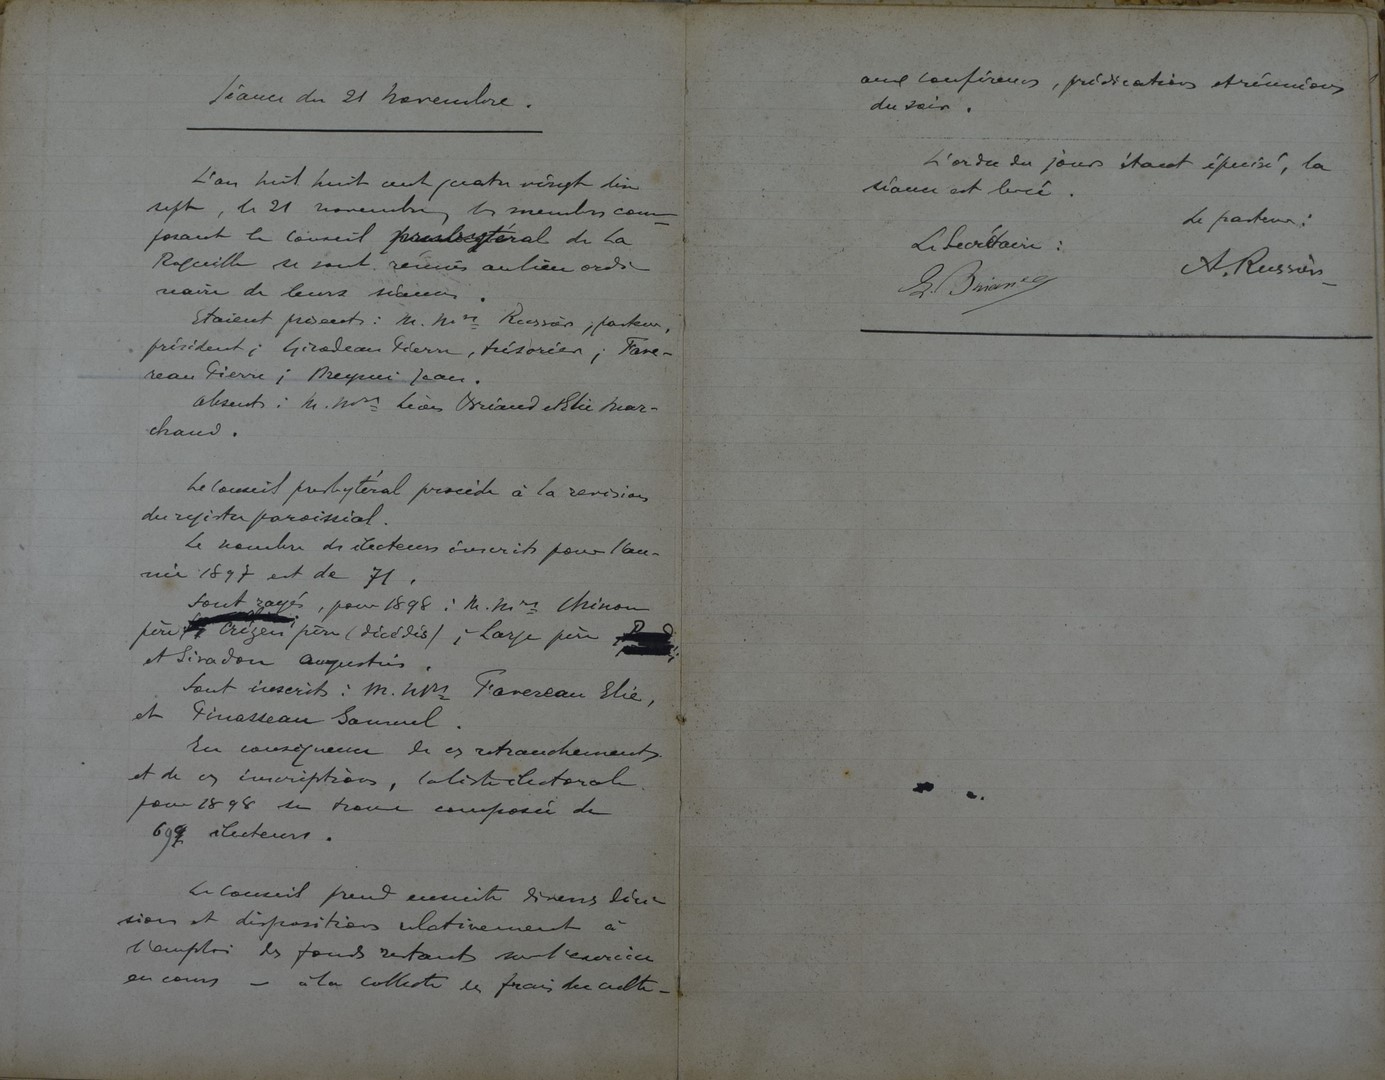 Séance du 21 novembre.
L'an mil huit cent quatre vingt dix
sept, le 21 novembre, les membres com-
posant le Conseil presbytéral de La
se sont réunis au lieu ordi-
naire de leurs séances.
Etaient présents : M. Mrs Russier, pasteur,
président ; Girodeau Pierre, trésorier ; Fave-
reau Pierre ; Jean.
Absents : M. Mrs Léon Briand et Elie Mar-
chand.
Le Conseil presbytéral procède à la revision
du registre paroissial.
Le nombre des électeurs inscrits pour l'an-
née 1897 est de 71.
Sont rayés, pour 1898 : M. Mrs Chinon
père, père (décédés) ; Large père
et Augustin.
Sont inscrits : M. Mrs Favereau Elie,
et Samuel.
En conséquence de ces retranchements
et de ces inscriptions, la liste électorale
pour 1898 se trouve composée de
69 électeurs.
Le Conseil prend ensuite divers déci-
sions et dispositions relativement à
l'emploi des fonds restants sur l'exercice
en cours – à la collecte des frais du culte –
aux conférences, prédications et réunions
du soir.
L'ordre du jour étant épuisé, la
séance est levée.
Le pasteur :
Le Secrétaire :
A. Russier